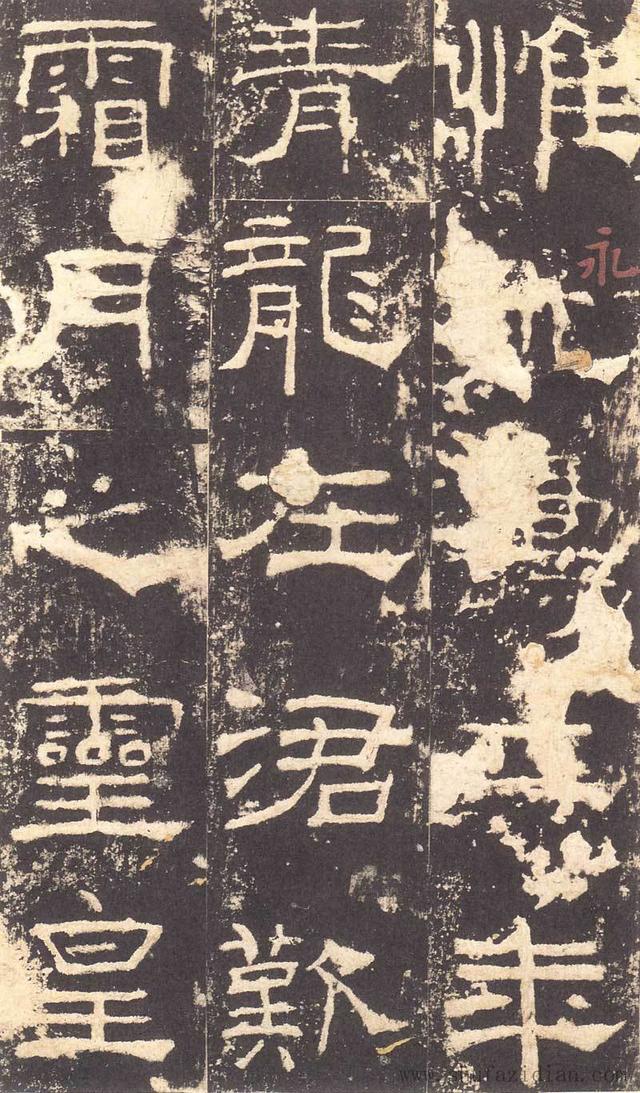 惟永壽二年
青龍在涒歎
霜月之靈皇
永
www.shufazidian.com